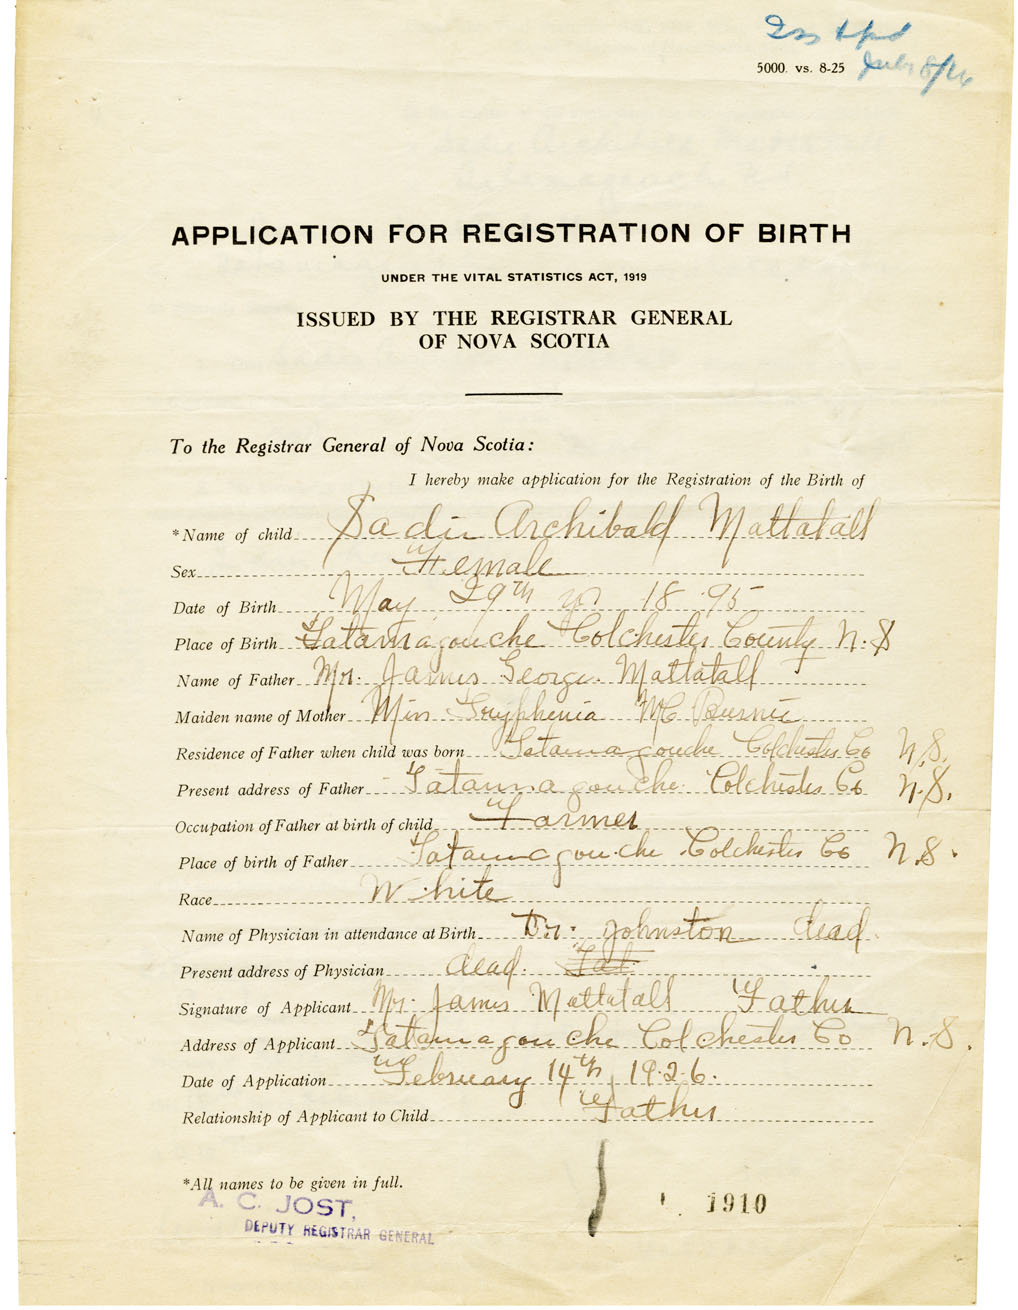 5000. vs. 8-25
July 8/26
APPLICATION FOR REGISTRATION OF BIRTH
UNDER THE VITAL STATISTICS ACT, 1919
ISSUED BY THE REGISTRAR GENERAL
OF NOVA SCOTIA
To the Registrar General of Nova Scotia:
I hereby make application for the Registration of the Birth of
*Name of child Sadie Archibald Mattatall
Sex Female
Date of Birth May 29th yr 1895
Place of Birth Tatamagouche Colchester County N.S
Name of Father Mr. James George Mattatall
Maiden name of Mother Miss Mc Burnie
Residence of Father when child was born Tatamagouche Colchester Co N.S.
Present address of Father Tatamagouche Colchester Co N.S.
Occupation of Father at birth of child Farmer
Place of birth of Father Tatamagouche Colchester Co N.S.
Race White
Name of Physician in attendance at Birth Dr. Johnston dead
Present address of Physician dead. Tat
Signature of Applicant Mr. James Mattatall Father
Address of Applicant Tatamagouche Colchester Co N.S.
Date of Application February 14th 1926.
Relationship of Applicant to Child Father
*All names to be given in full.
A. C. JOST,
DEPUTY REGISTRAR GENERAL
1910